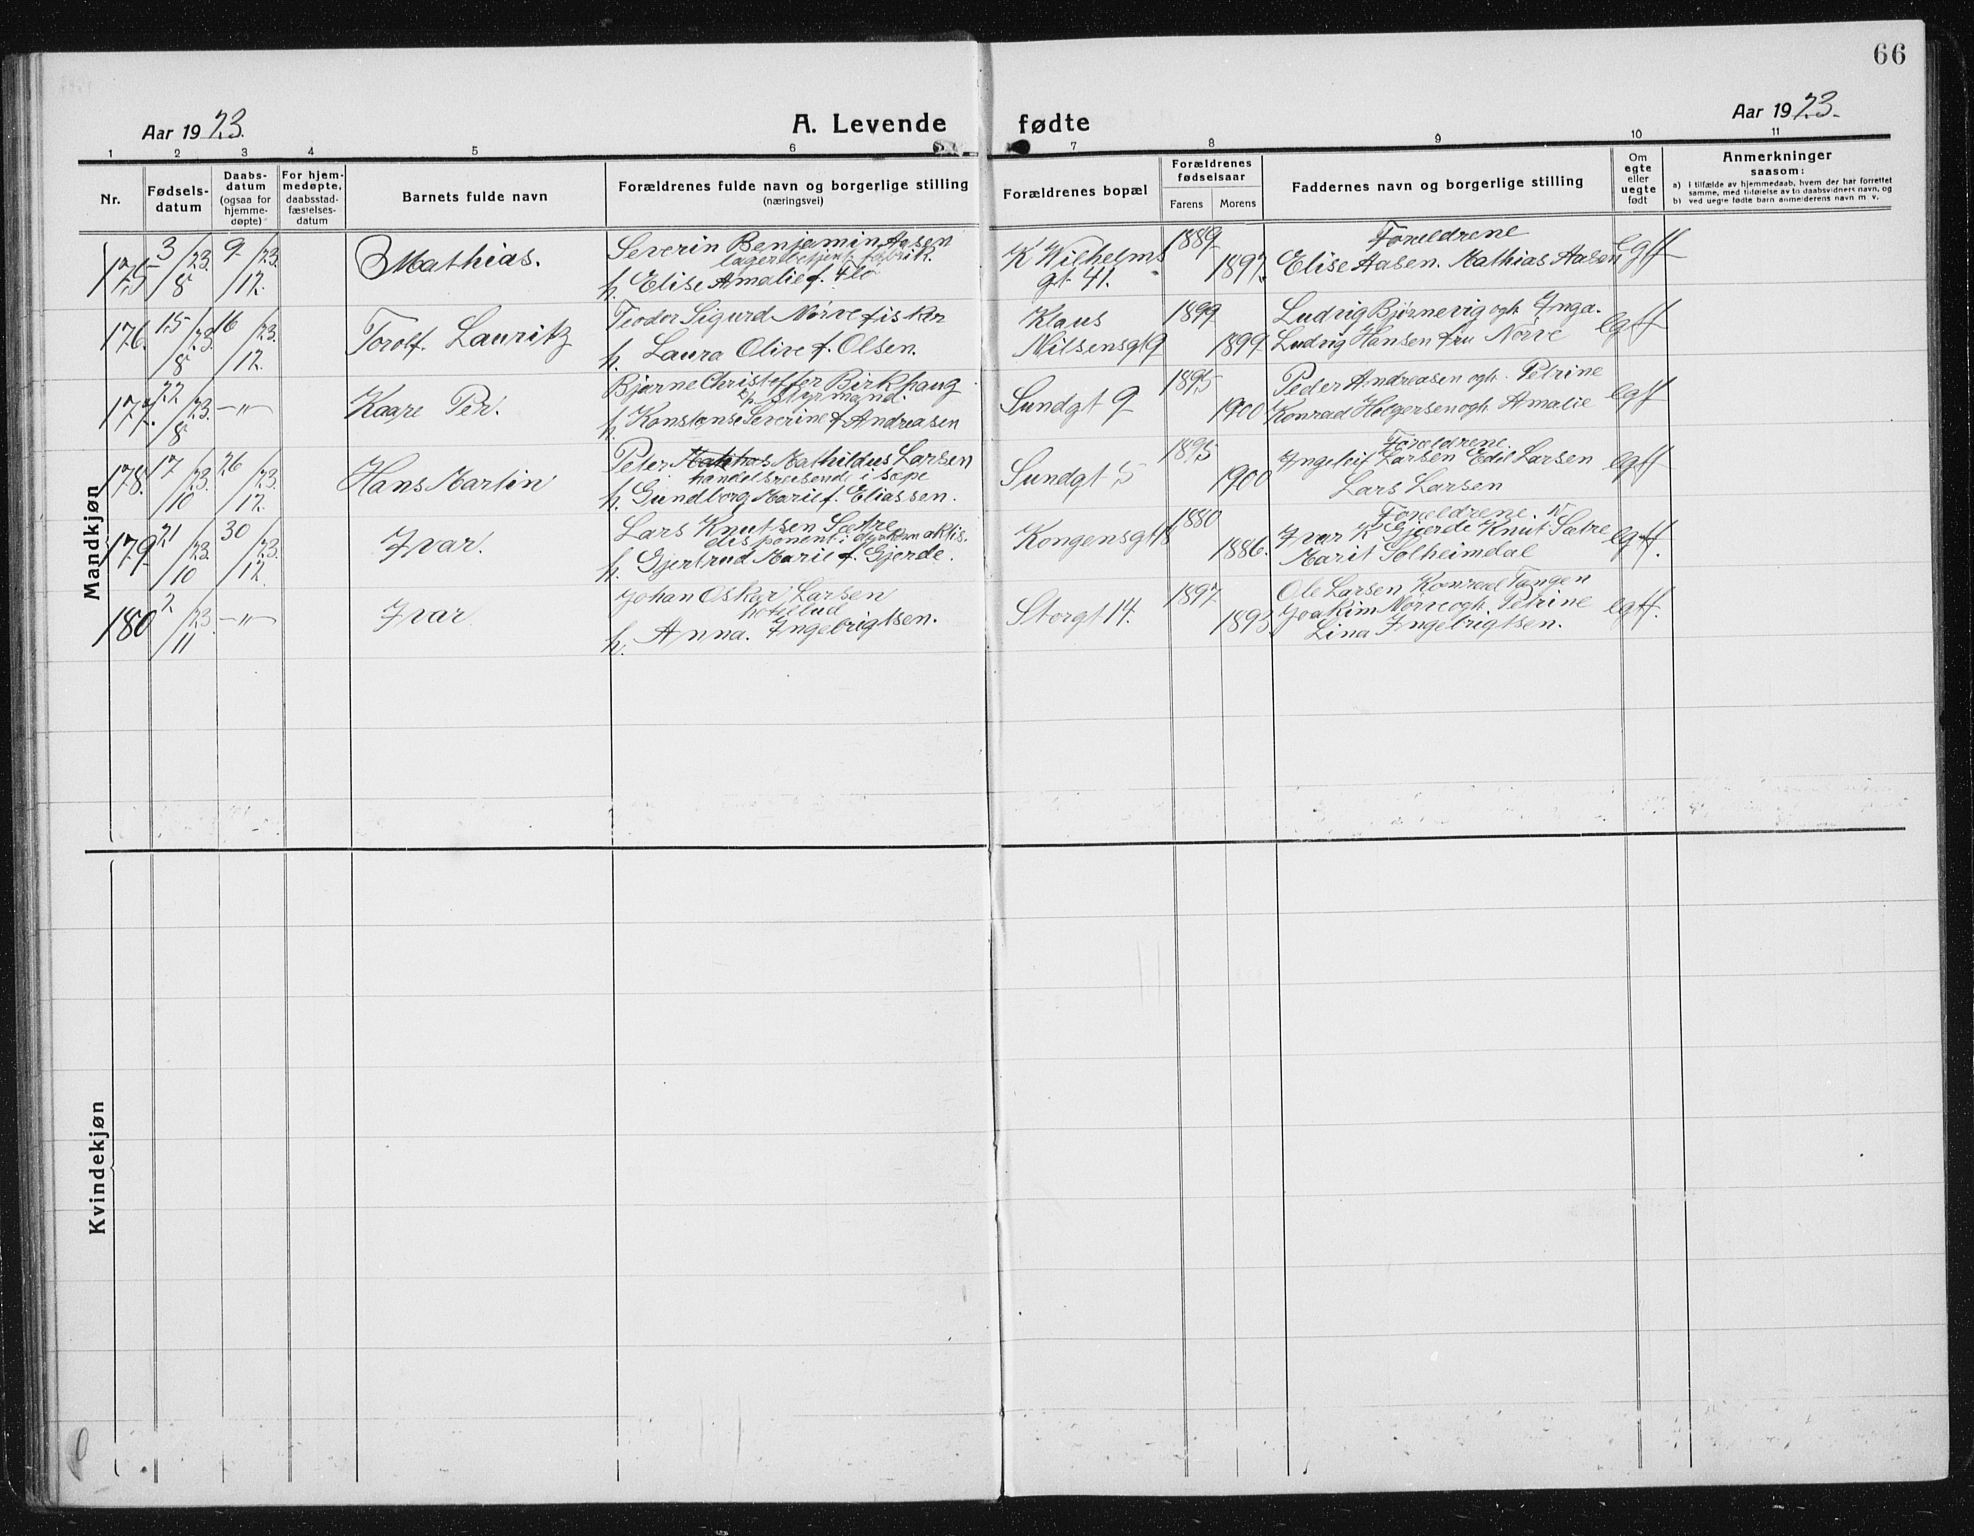 66
Aar 1923.
A. Levende fødte
Aar 1923.
1 2 3 4 5 6 7 8 9 10 11
Nr.
Fødsels-
datum
Daabs-
datum
(ogsaa for
hjemme-
døpte)
For hjem-
medøpte,
daabsstad-
fæstelses-
datum
Barnets fulde navn
Forældrenes fulde navn og borgerlige stilling
(næringsvei)
Forældrenes bopæl
Forældrenes
fødselsaar
Farens Morens
Faddernes navn og borgerlige stilling
Om
egte
eller
uegte
født
Anmerkninger
saasom:
a) I tilfælde av hjemmedaab, hvem der har forrettet
samme, med tilføielse av to daabsvidners navn, og
b) ved uegte fødte barn anmelderens navn m. v.
Mandkjøn
175 3/8 23. 9/12. 23. Mathias.
Severin Benjamin Aasen
lagerbetjent fabrik.
h. Elise Amalie f. Flo
K Wilhelms
gt. 41.
1889 1897.
Forældrene
Elise Aasen. Mathias Aasen
egtf
176. 15/8 23. 16/12. 23. Torolf Lauritz
Teodor Sigurd Nørve fisker
h. Laura Olive f. Olsen.
Klaus
Nilsensgt 9
1899 1899
Ludvig Bjørnevig ogh. Inga.
Ludvig Hansen fru Nørve
egtf
177. 22/8 23. —"— Kaare Per.
Bjarne Christoffer Birkhaug
styrmand.
h. Konstanse Severine f Andreasen
Sundgt 9
1895 1900
Peder Andreasen ogh. Petrine
Konrad Holgersen ogh Amalie
egtf
178. 17/10 23. 26/12. 23. Hans Martin
Peter Mathildus Larsen
handelsreisende i sæpe
h. Gundborg Marie f. Eliassen.
Sundgt 5
1895 1900
Forældrene.
Ingeleif Larsen Edel Larsen
Lars Larsen
egtf
179 21/10 23. 30/12. 23. Ivar.
Lars Knutsen Sætre
disponent i
h. Gjertrud Marie f. Gjerde.
Kongensgt 18
1880 1886.
Forældrene.
Ivar K Gjerde Knut Sætre
Marit Solheimdal
egtf.
180 2/11 23. —"— Ivar
Johan Oskar Larsen
hotelbud
h. Anna. Ingebrigtsen.
Storgt 14.
1897. 1893.
Ole Larsen Konrad Tangen
Joakim Nørve ogh. Petrine
Lina Ingebrigtsen.
egtf.
Kvindekjøn